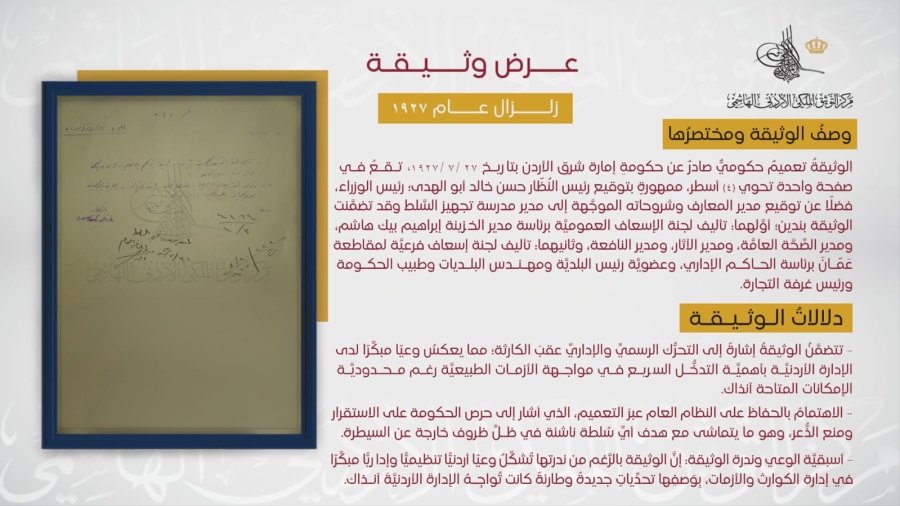 مركز التوثيق الملكي الأردني الهاشمي
عـــرض وثــيـقــة
زلــزال عــام ١٩٢٧
وصفُ الوثيقة ومختصرُها
الوثيقةُ تعميمٌ حكوميٌّ صادرٌ عن حكومةِ إمارة شرق الأردن بتاريخ ٢٧ /٧ /١٩٢٧، تـقـعُ فـي
صفحة واحدة تحوي (٤) أسطر، ممهورة بتوقيع رئيس النُظّار حسن خالد أبو الهدى؛ رئيس الوزراء،
فضلًا عن توقيع مدير المعارف وشروحاته الموجَّهة إلى مدير مدرسة تجهيز السَّلط وقد تضمَّنت
الوثيقة بندين؛ أوَّلهما: تأليف لجنة الإسعاف العموميَّة برئاسة مدير الخزينة إبراهيم بيك هاشم،
ومدير الصِّحَّة العامَّة، ومدير الآثار، ومدير النافعة، وثانيهما: تأليف لجنة إسعاف فرعيَّة لمقاطعة
عَمَّانَ برئاسة الحـاكـم الإداري، وعضويَّة رئيس البلديَّة ومهـنـدس البلديات وطبيب الحكـومة
ورئيس غرفة التجارة.
دلالاتُ الـوثـيـقـة
- تتضمَّنُ الوثيقةُ إشارةً إلى التحرُّك الرسميِّ والإداريِّ عقبَ الكارثة؛ مما يعكسُ وعيًا مبكِّرًا لدى
الإدارة الأردنيَّـة بأهميَّـة التدخُّـل السريـع فـي مواجهة الأزمـات الطبيعيَّة رغـم مـحـدوديَّـة
الإمكانات المتاحة آنذاك.
- الاهتمامُ بالحفاظ على النظام العام عبرَ التعميم، الذي أشار إلى حرص الحكومة على الاستقرار
ومنع الذُّعر، وهو ما يتماشى مع هدف أيِّ سُلطة ناشئة في ظـلِّ ظروف خارجة عن السيطرة.
- أسبقيَّة الوعي وندرة الوثيقة: إنَّ الوثيقة بالرَّغم من ندرتها تُشكِّلُ وعيًا أردنيًّا تنظيميًّا وإداريًّا مبكرًا
في إدارة الكوارث والأزمات، بوَصفِها تحدِّياتٍ جديدةً وطارئةً كانت تُواجِـهُ الإدارة الأردنيَّة آنـذاك.